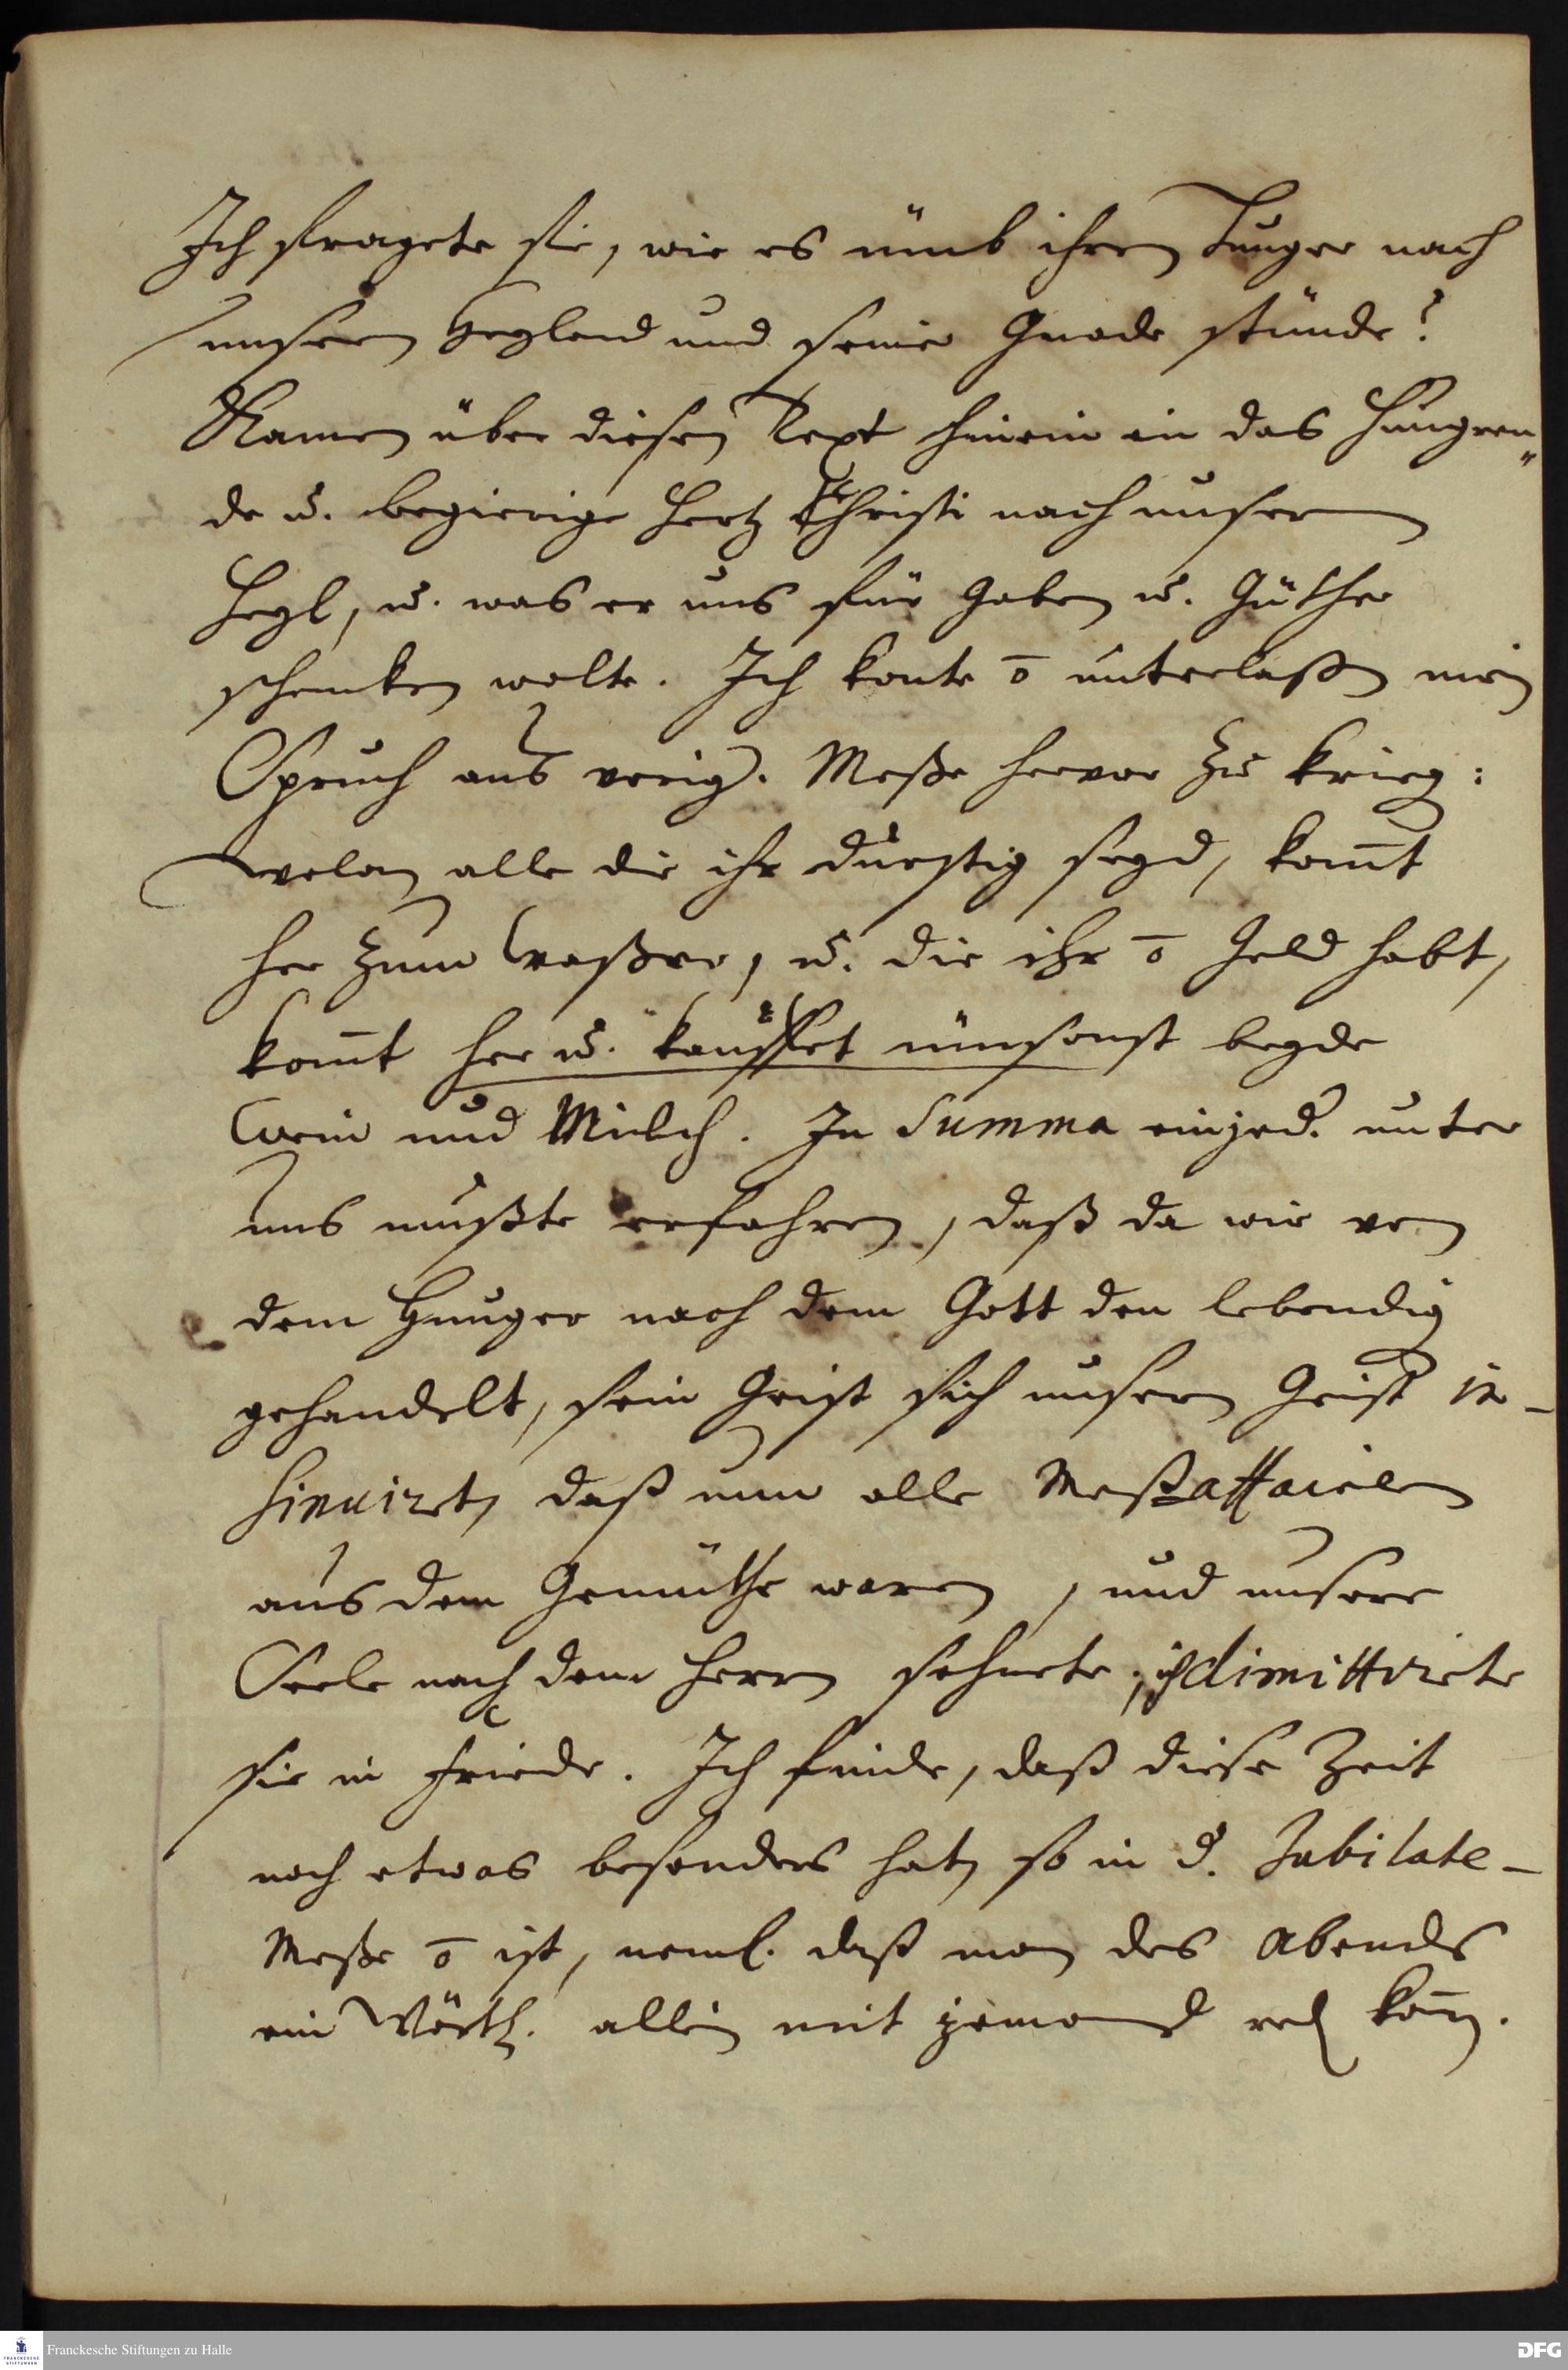 Ich fragete sie, wie es ümb ihren Hunger nach
unsern Heyland und seiner Gnade stünde?
Kamen über diesen Text hinein in das hungren„
de u. begierige Hertz Christi nach unserm
Heyl, u. was er uns für Gaben u. Güther
schencken wolte. Ich konte ō unterlaßen mein
Spruch aus voriger Meße hervor zu krieg:
wolan alle die ihr durstig seyd, kom̄t
her zum Waßer, u. die ihr ō Geld habt,
kom̄t her u. kauffet ümsonst beyde
Wein und Milch. In Summa einjed. unter
uns mußte erfahren, daß da wir von
dem Hunger nach dem Gott den lebendig
gehandelt, sein Geist sich unsern Geist in-
sinuiret, daß nun alle Meßaffairen
aus dem Gemüthe waren, und unsere
Seele nach dem Herrn sehnete; ich dimittirete
sie in Friede. Ich finde, daß diese Zeit
noch etwas besonders hat, so in d. Jubilate-
Meße ō ist, neml. daß man des Abends
ein Wörtl. allein mit jemand red kan̄.
Franckesche Stiftungen zu Halle
DFG